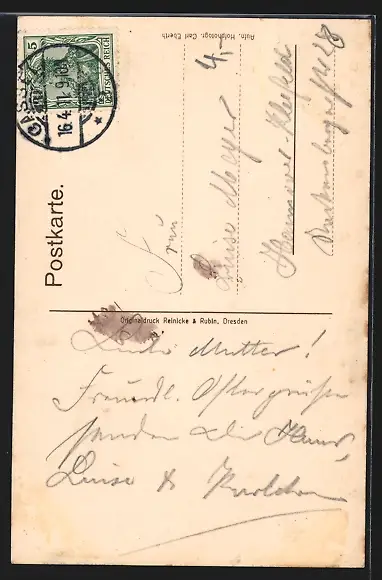 Postkarte.
5
DEUTSCHES REICH
CASSEL
16.4.11. 9-10
Aufn. Hofphotogr. Carl Eberth
4,-
Frau
Luise Meyer
Hannover-Kleefeld
28
Originaldruck Reinicke & Rubin, Dresden
Liebe Mutter!
Freundl. Ostergrüße
senden Dir Hans,
Luise & Karlchen